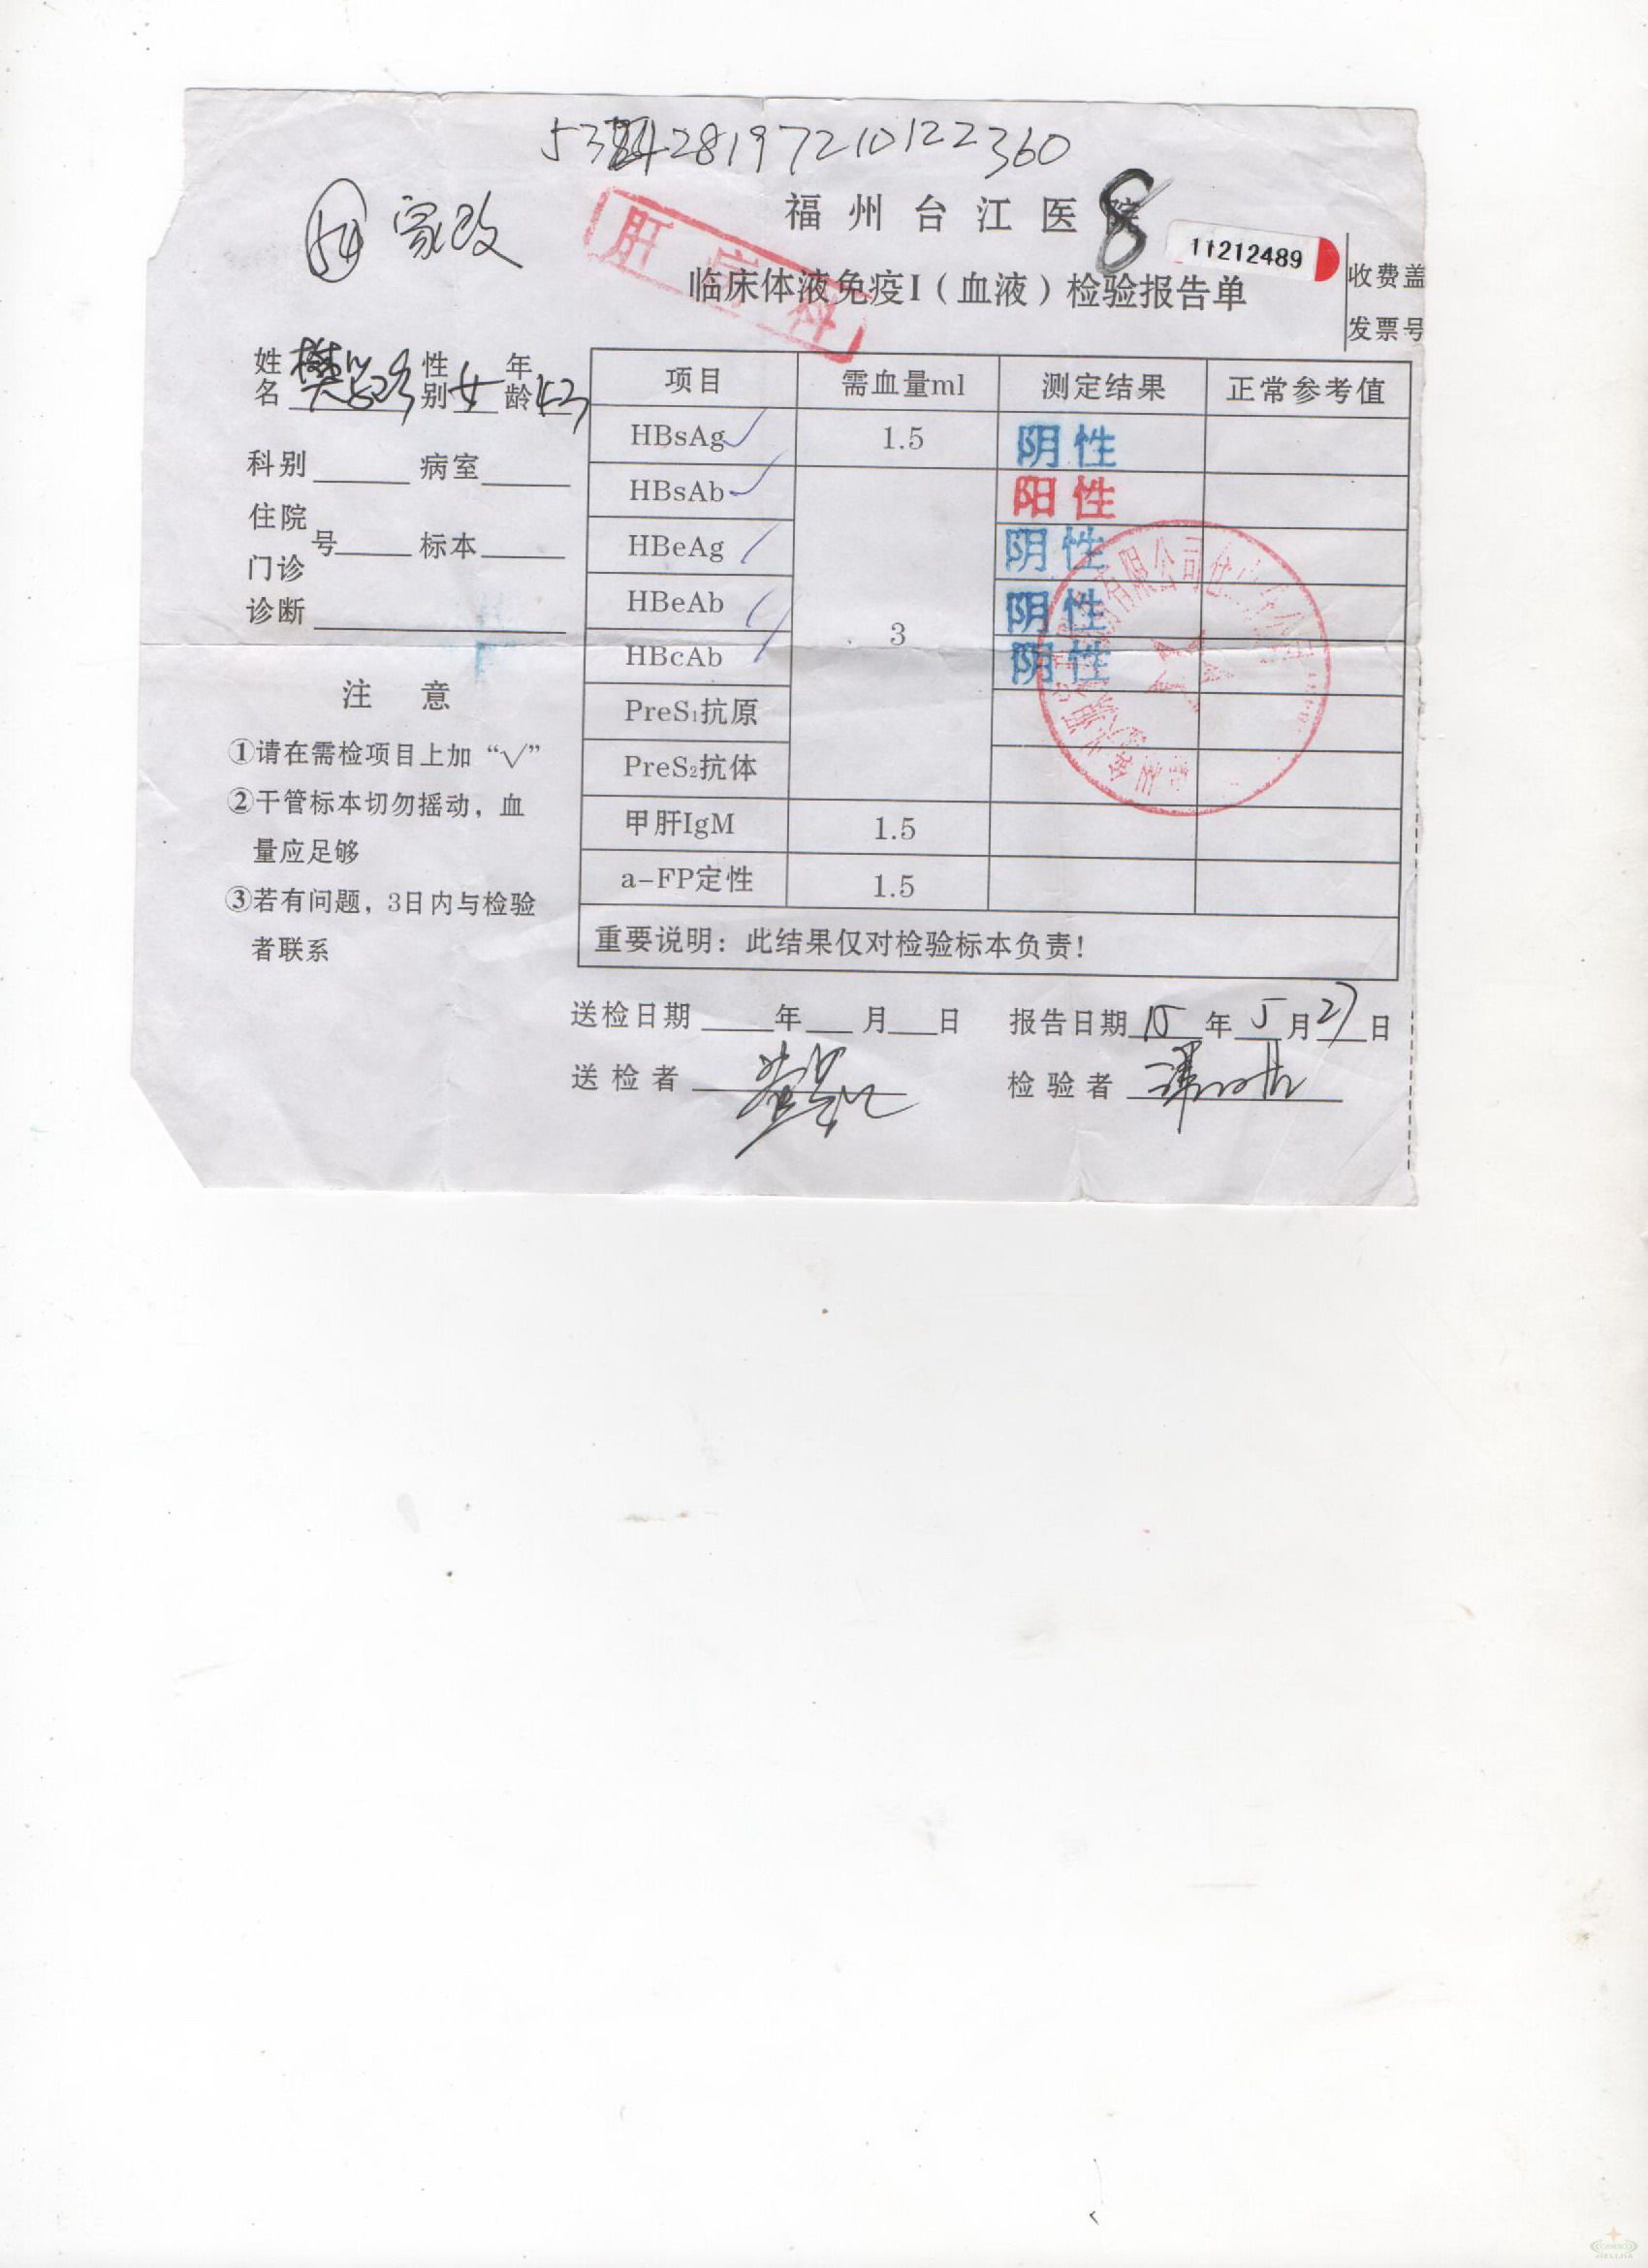 福州台江医
8
11212489
家政
肝病科
临床体液免疫I（血液）检验报告单
收费盖
发票号
姓名 樊 性别 女 年龄 43
科别 病室
住院
门诊 号 标本
诊断
注 意
①请在需检项目上加“√”
②干管标本切勿摇动，血
量应足够
③若有问题，3日内与检验
者联系
项目 需血量ml 测定结果 正常参考值
HBsAg 1.5 阴性
HBsAb 阳性
HBeAg 阴性
HBeAb 3 阴性
HBcAb 阴性
PreS₁抗原
PreS₂抗体
甲肝IgM 1.5
a-FP定性 1.5
重要说明：此结果仅对检验标本负责！
送检日期 年 月 日 报告日期 15 年 5 月 27 日
送检者 检验者